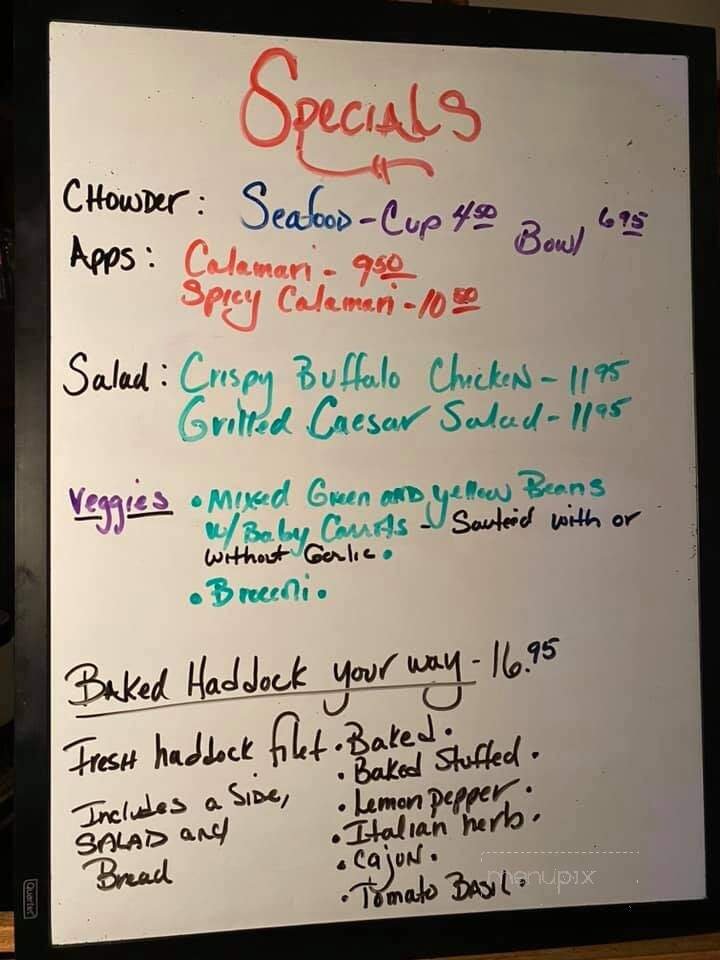 Specials
Chowder: Seafood - Cup 4 50 Bowl 6 95
Apps: Calamari - 9 50
Spicy Calamari - 10 50
Salad: Crispy Buffalo Chicken - 11 95
Grilled Caesar Salad - 11 95
Veggies • Mixed Green and yellow Beans
w/ Baby Carrots - Sauteid with or
without Garlic •
• Broccoli •
Baked Haddock your way - 16.95
Fresh haddock filet • Baked •
• Baked Stuffed •
Includes a Side, • Lemon pepper •
SALAD and • Italian herb •
Bread • Cajun •
• Tomato Basil •
menupix
Quartet